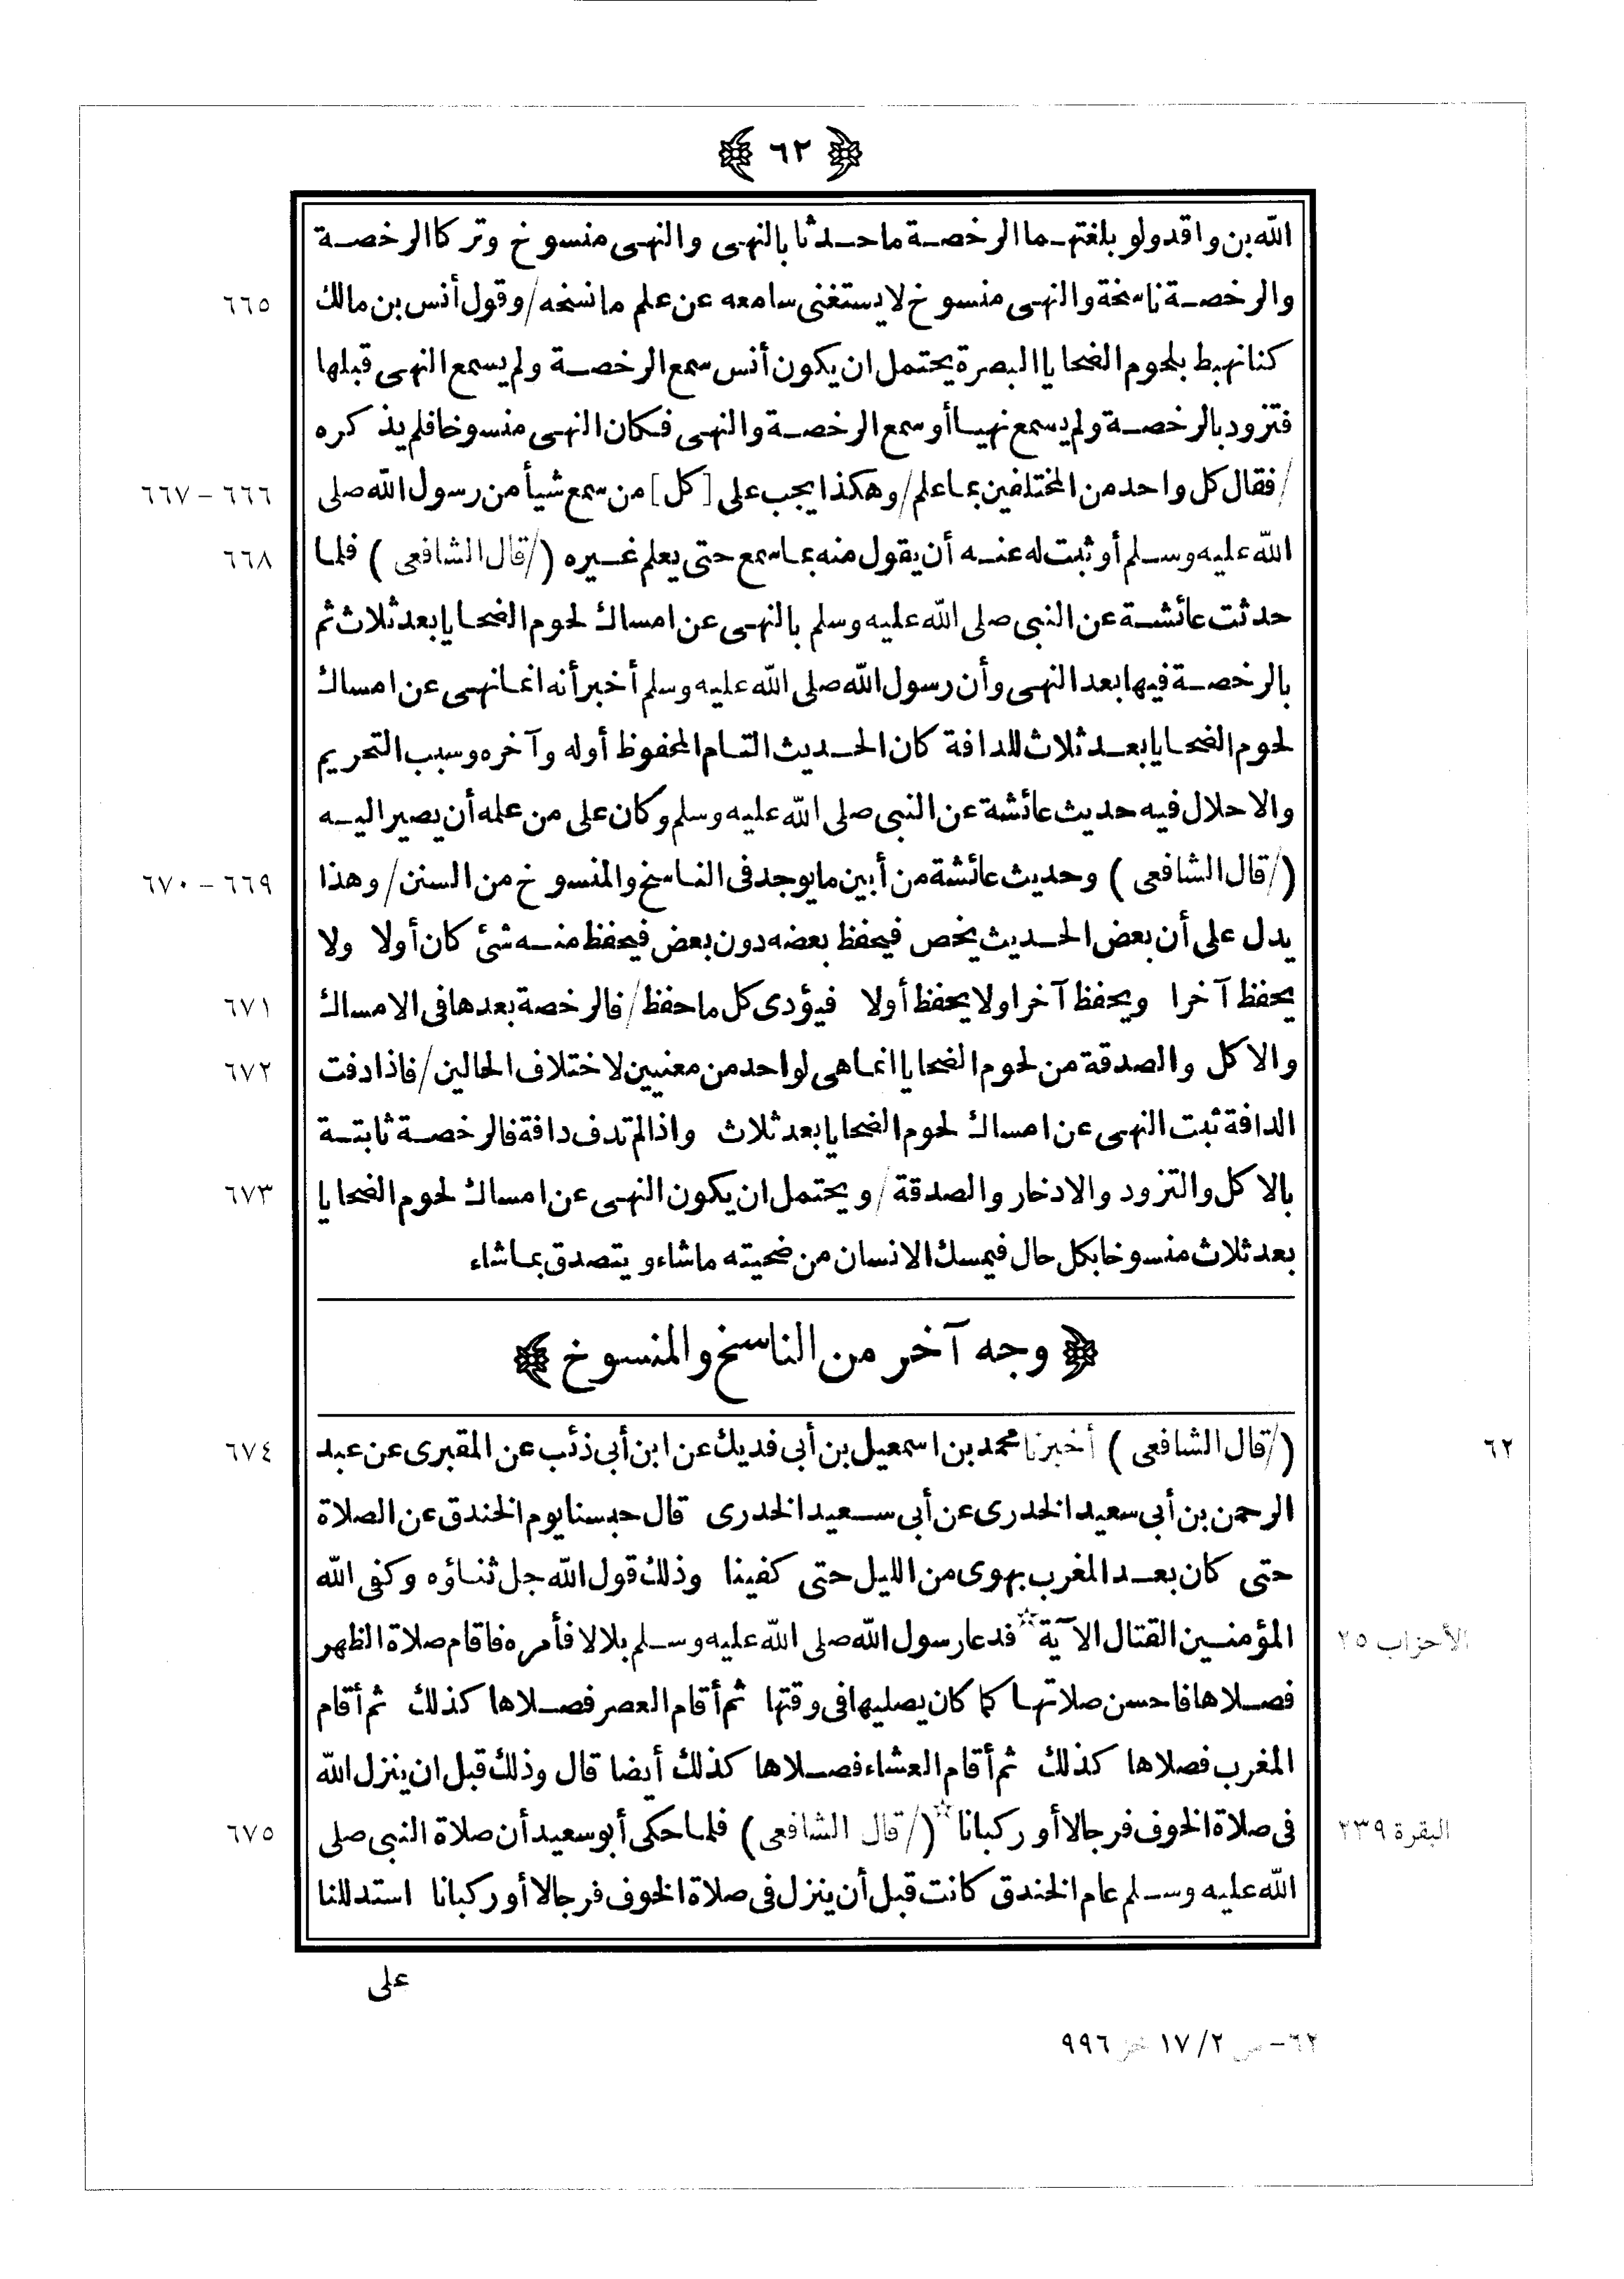 ﴿ ٦٢ ﴾
الله بن واقد ولو بلغتهما الرخصة ما حدثا بالنهى والنهى منسوخ وتركا الرخصة
والرخصة ناسخة والنهى منسوخ لا يستغنى سامعه عن علم ما نسخه / وقول أنس بن مالك ٦٦٥
كنا نهبط بلحوم الضحايا البصرة يحتمل ان يكون أنس سمع الرخصة ولم يسمع النهى قبلها
فتزود بالرخصة ولم يسمع نهيا أو سمع الرخصة والنهى فكان النهى منسوخا فلم يذكره
/ فقال كل واحد من المختلفين بما علم / وهكذا يجب على [كل] من سمع شيأ من رسول الله صلى ٦٦٦ – ٦٦٧
الله عليه وسلم أو ثبت له عنه أن يقول منه بما سمع حتى يعلم غيره (/ قال الشافعى ) فلما ٦٦٨
حدثت عائشة عن النبى صلى الله عليه وسلم بالنهى عن امساك لحوم الضحايا بعد ثلاث ثم
بالرخصة فيها بعد النهى وأن رسول الله صلى الله عليه وسلم أخبر أنه انما نهى عن امساك
لحوم الضحايا بعد ثلاث للدافة كان الحديث التام المحفوظ أوله وآخره وسبب التحريم
والاحلال فيه حديث عائشة عن النبى صلى الله عليه وسلم وكان على من علمه أن يصير اليه
(/ قال الشافعى ) وحديث عائشة من أبين ما يوجد فى الناسخ والمنسوخ من السنن / وهذا ٦٦٩ – ٦٧٠
يدل على أن بعض الحديث يخص فيحفظ بعضه دون بعض فيحفظ منه شئ كان أولا ولا
يحفظ آخرا ويحفظ آخرا ولا يحفظ أولا فيؤدى كل ما حفظ / فالرخصة بعدها فى الامساك ٦٧١
والاكل والصدقة من لحوم الضحايا انما هى لواحد من معنيين لاختلاف الحالين / فاذا دفت ٦٧٢
الدافة ثبت النهى عن امساك لحوم الضحايا بعد ثلاث واذا لم تدف دافة فالرخصة ثابتة
بالاكل والتزود والادخار والصدقة / ويحتمل ان يكون النهى عن امساك لحوم الضحايا ٦٧٣
بعد ثلاث منسوخا بكل حال فيمسك الانسان من ضحيته ما شاء ويتصدق بما شاء
﴿ وجه آخر من الناسخ والمنسوخ ﴾
٦٢ (/ قال الشافعى ) أخبرنا محمد بن اسمعيل بن أبى فديك عن ابن أبى ذئب عن المقبرى عن عبد ٦٧٤
الرحمن بن أبى سعيد الخدرى عن أبى سعيد الخدرى قال حبسنا يوم الخندق عن الصلاة
حتى كان بعد المغرب بهوى من الليل حتى كفينا وذلك قول الله جل ثناؤه وكفى الله
الأحزاب ٢٥ المؤمنين القتال الآية☆ فدعا رسول الله صلى الله عليه وسلم بلالا فأمره فاقام صلاة الظهر
فصلاها فاحسن صلاتها كما كان يصليها فى وقتها ثم أقام العصر فصلاها كذلك ثم أقام
المغرب فصلاها كذلك ثم أقام العشاء فصلاها كذلك أيضا قال وذلك قبل ان ينزل الله
البقرة ٢٣٩ فى صلاة الخوف فرجالا أو ركبانا☆ (/ قال الشافعى ) فلما حكى أبو سعيد أن صلاة النبى صلى ٦٧٥
الله عليه وسلم عام الخندق كانت قبل أن ينزل فى صلاة الخوف فرجالا أو ركبانا استدللنا
على
٦٢- س ١٧/٢ خز ٩٩٦